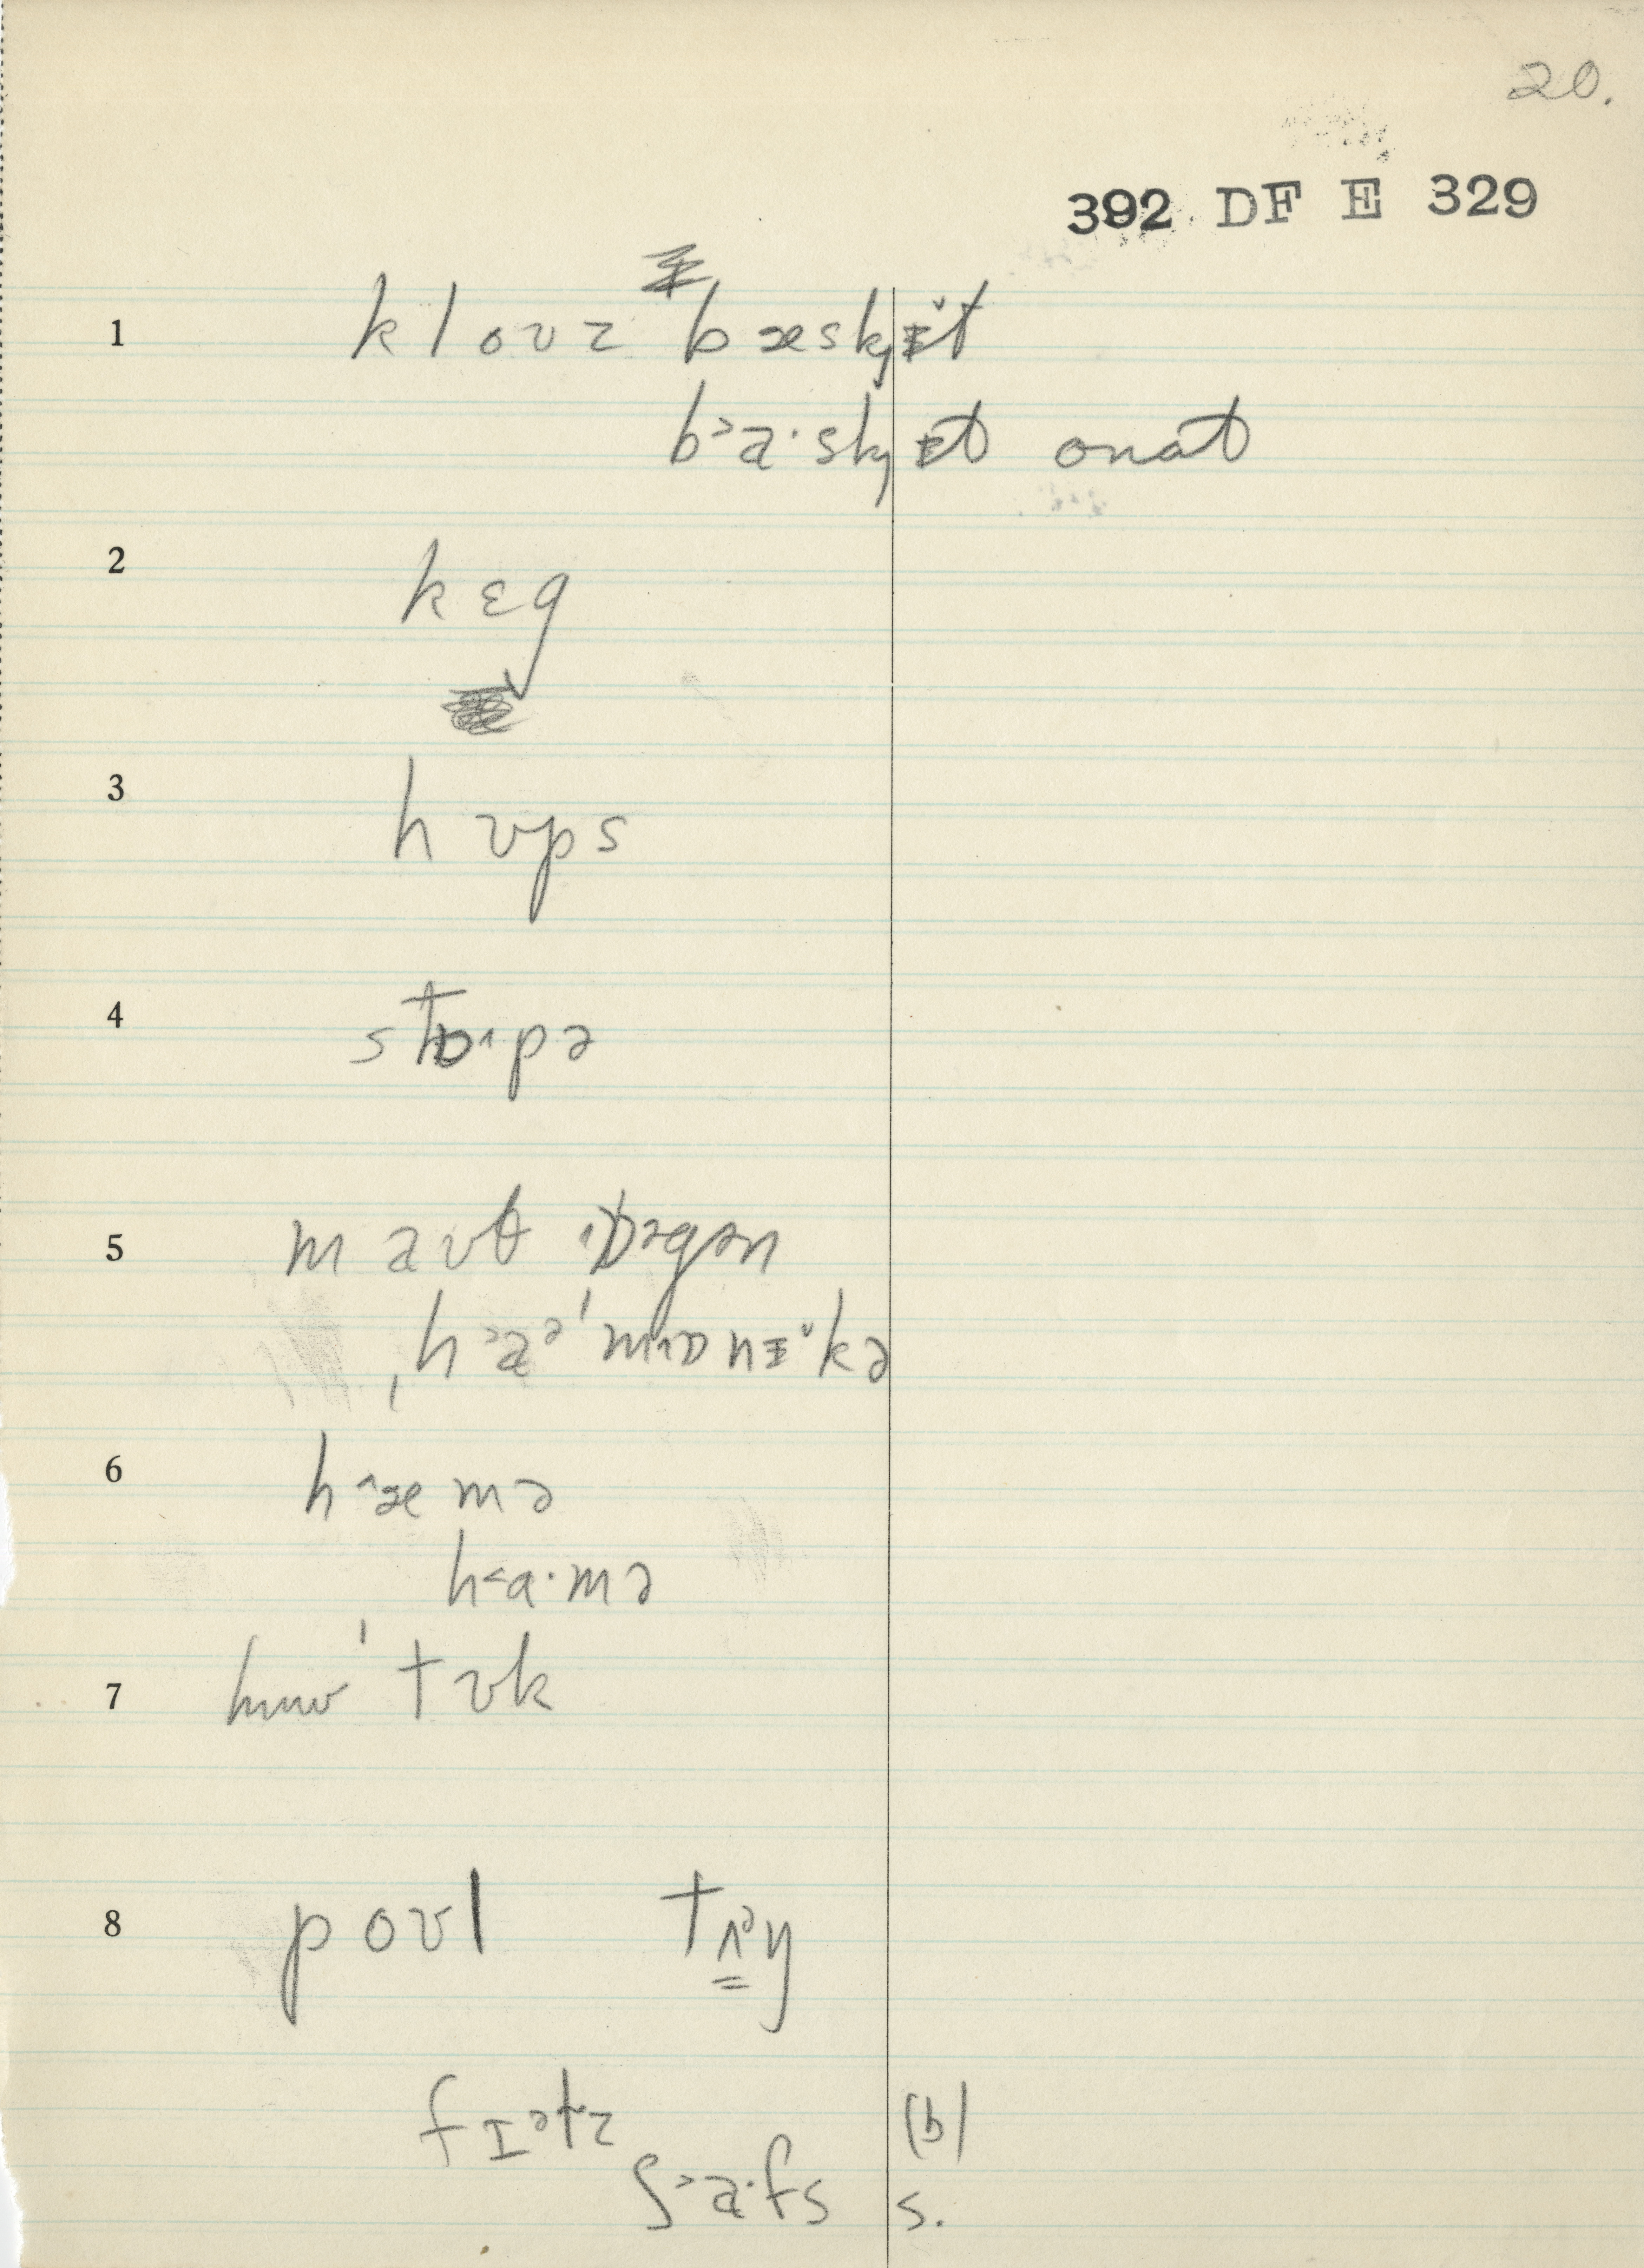 20.
392 DF E 329
1 kloʊz bæskɟɪ̆t
b˃a·skɟɪt onat
2 kɛg
3 hʊps
4 stɒ˄pə
5 maʊθ ɒəgən
ˌh˃aᵊˈm˄ɒnɪ̆kə
6 h˄æmə
h˂a·mə
7 hmwˈtʊk
8 poʊl tʌᵊŋ
fɪᵊtz (b)
ʃ˃a·fs s.